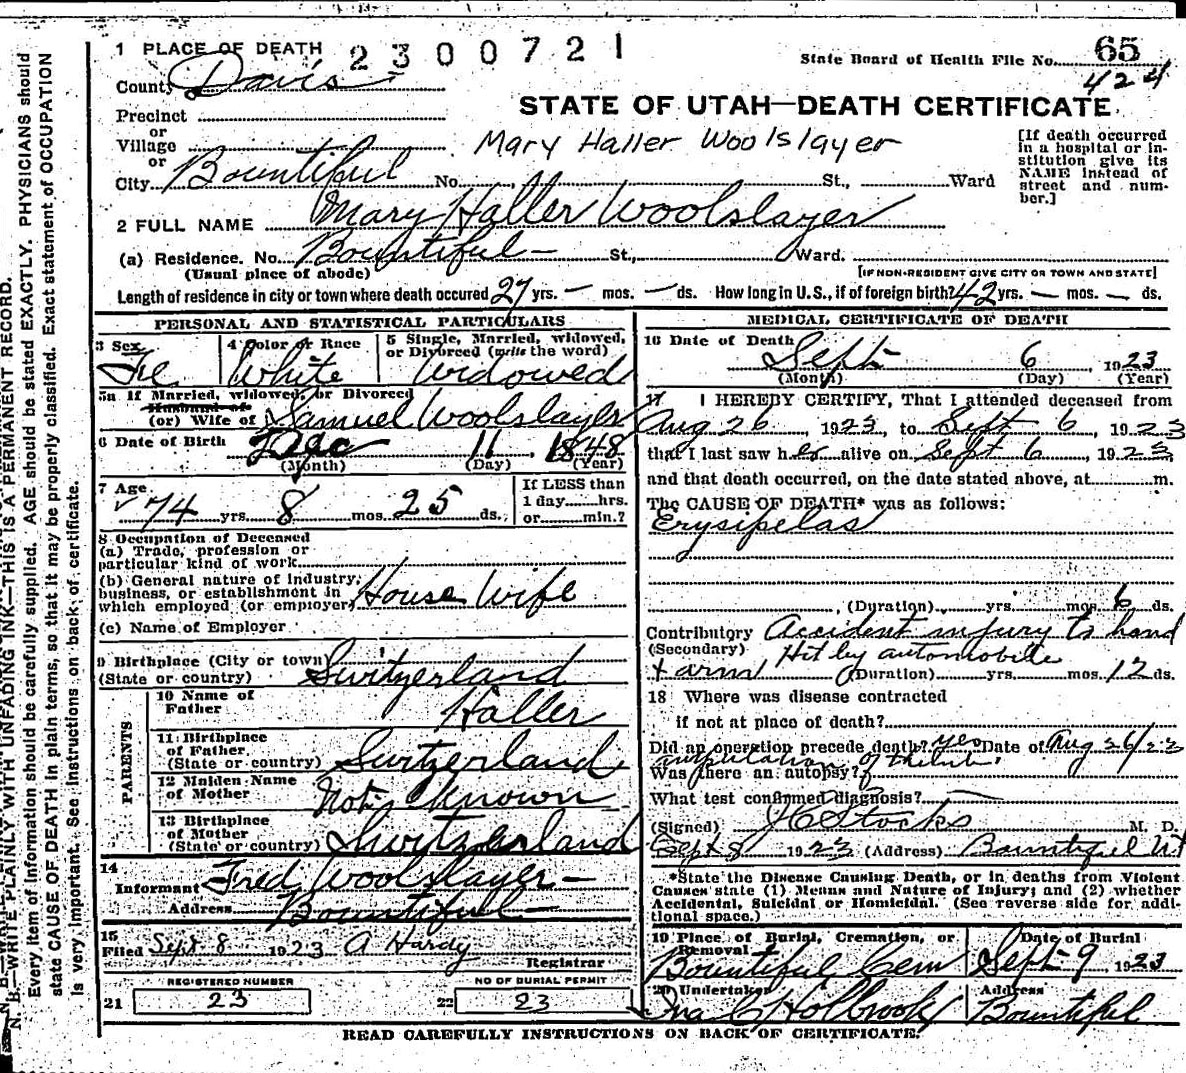 1 PLACE OF DEATH 2300721
State Board of Health File No. 65
424
County Davis
STATE OF UTAH—DEATH CERTIFICATE
Precinct
or
Village
Mary Haller Woolslayer
or
City Bountiful No. St., Ward
[If death occurred in a hospital or institution give its NAME instead of street and number.]
2 FULL NAME Mary Haller Woolslayer
(a) Residence. No. Bountiful — St., Ward.
(Usual place of abode) [IF NON-RESIDENT GIVE CITY OR TOWN AND STATE]
Length of residence in city or town where death occured 27 yrs. — mos. — ds. How long in U.S., if of foreign birth? 42 yrs. — mos. — ds.
PERSONAL AND STATISTICAL PARTICULARS
3 Sex Fe
4 Color or Race White
5 Single, Married, widowed, or Divorced (write the word) Widowed
5a If Married, widowed, or Divorced
Husband of
(or) Wife of Samuel Woolslayer
6 Date of Birth Dec 11, 1848
(Month) (Day) (Year)
7 Age 74 yrs. 8 mos. 25 ds.
If LESS than
1 day hrs.
or min.?
8 Occupation of Deceased
(a) Trade, profession or
particular kind of work
(b) General nature of industry,
business, or establishment in
which employed (or employer) House Wife
(c) Name of Employer
9 Birthplace (City or town)
(State or country) Switzerland
PARENTS
10 Name of
Father Haller
11 Birthplace
of Father
(State or country) Switzerland
12 Maiden Name
of Mother Not Known
13 Birthplace
of Mother
(State or country) Switzerland
14
Informant Fred Woolslayer —
Address Bountiful —
15
Filed Sept 8 1923 A Hardy
Registrar
REGISTERED NUMBER
21 23
NO OF BURIAL PERMIT
22 23
MEDICAL CERTIFICATE OF DEATH
16 Date of Death
Sept 6 1923
(Month) (Day) (Year)
17 I HEREBY CERTIFY, That I attended deceased from
Aug 26, 1923, to Sept 6, 1923
that I last saw her alive on Sept 6, 1923,
and that death occurred, on the date stated above, at m.
The CAUSE OF DEATH* was as follows:
Erysipelas
(Duration) yrs. mos. 6 ds.
Contributory Accident injury to hand
(Secondary) Hit by automobile
+ arm (Duration) yrs. mos. 12 ds.
18 Where was disease contracted
if not at place of death?
Did an operation precede death? yes Date of Aug 26/23
amputation of
Was there an autopsy?
What test confirmed diagnosis? —
(Signed) J C Stocks M. D.
Sept 8 1923 (Address) Bountiful Ut
*State the Disease Causing Death, or in deaths from Violent
Causes state (1) Means and Nature of Injury; and (2) whether
Accidental, Suicidal or Homicidal. (See reverse side for addi-
tional space.)
19 Place of Burial, Cremation, or
Removal
Bountiful Cem
Date of Burial
Sept 9, 1923
20 Undertaker
Holbrook
Address
Bountiful
READ CAREFULLY INSTRUCTIONS ON BACK OF CERTIFICATE.
N. B.—WRITE PLAINLY WITH UNFADING INK—THIS IS A PERMANENT RECORD.
Every item of information should be carefully supplied. AGE should be stated EXACTLY. PHYSICIANS should
state CAUSE OF DEATH in plain terms, so that it may be properly classified. Exact statement of OCCUPATION
is very important. See instructions on back of certificate.